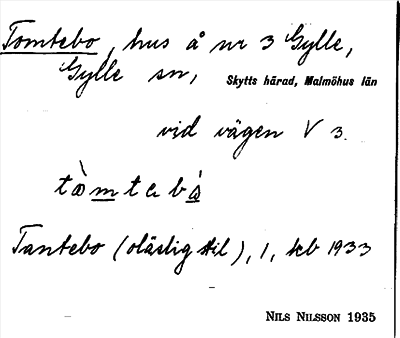 Tomtebo, hus å nr 3 Gylle,
Gylle sn, Skytts härad, Malmöhus län
vid vägen V 3.
Tantebo (oläslig stil), 1, kb 1933
NILS NILSSON 1935